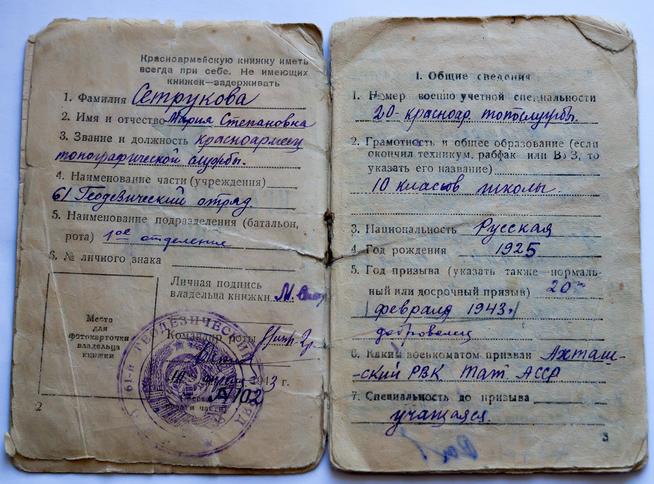 Красноармейскую книжку иметь
всегда при себе. Не имеющих
книжек—задерживать
1. Фамилия Сетрукова
2. Имя и отчество Мария Степановна
3. Звание и должность красноармеец
топографической службы.
4. Наименование части (учреждения)
61 Геодезический отряд
5. Наименование подразделения (батальон,
рота) 1ое отделение
6. № личного знака
Личная подпись
владельца книжки
Место
для
фотокарточки
владельца
книжки
Командир роты
194 3 г.
№ 102
2
I. Общие сведения
1. Номер военно-учетной специальности
20- красноар. топослужбы.
2. Грамотность и общее образование (если
окончил техникум, рабфак или ВУЗ, то
указать его название)
10 классов школы.
3. Национальность Русская
4. Год рождения 1925
5. Год призыва (указать также — нормаль-
ный или досрочный призыв) 20
февраля 1943 г
доброволец
6. Каким военкоматом призван Акташ-
ский РВК Тат АССР
7. Специальность до призыва
учащаяся.
3